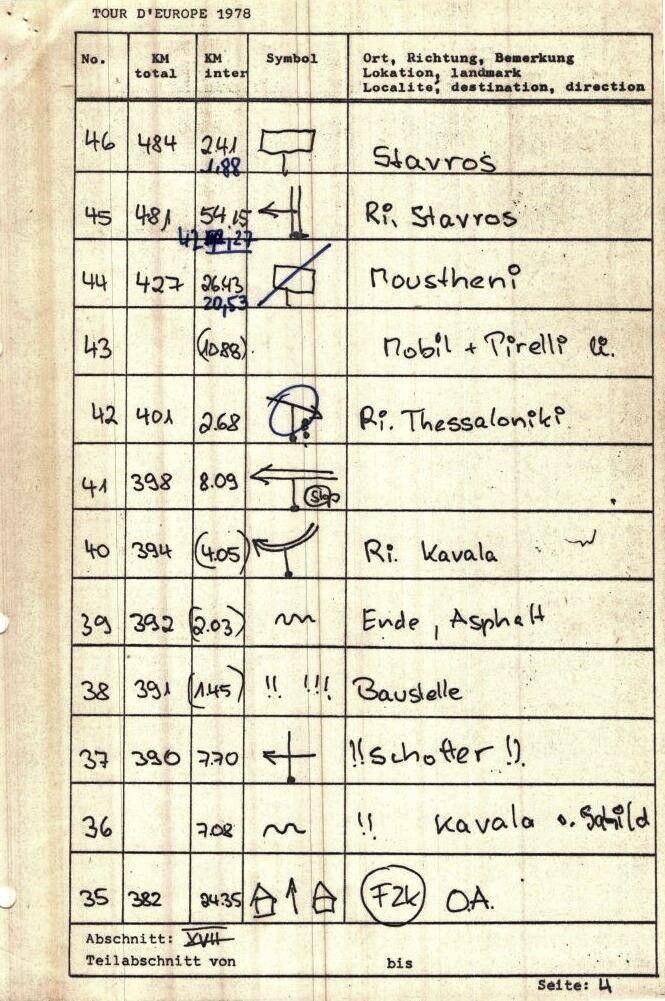 TOUR D'EUROPE 1978
No. KM total KM inter Symbol Ort, Richtung, Bemerkung
Lokation, landmark
Localite, destination, direction
46 484 2.41 Stavros
1,88
45 481 54.15 Ri. Stavros
42,27
44 427 26.43 Moustheni
20,53
43 (10.88) Mobil + Pirelli li.
42 401 2.68 Ri. Thessaloniki
41 398 8.09 Stop
40 394 (4.05) Ri. Kavala
39 392 (2.03) Ende, Asphalt
38 391 (1.45) !! !!! Baustelle
37 390 7.70 !!schotter!!
36 7.08 !! Kavala o. Schild
35 382 24.35 FZK O.A.
Abschnitt: XVII
Teilabschnitt von bis
Seite: 4